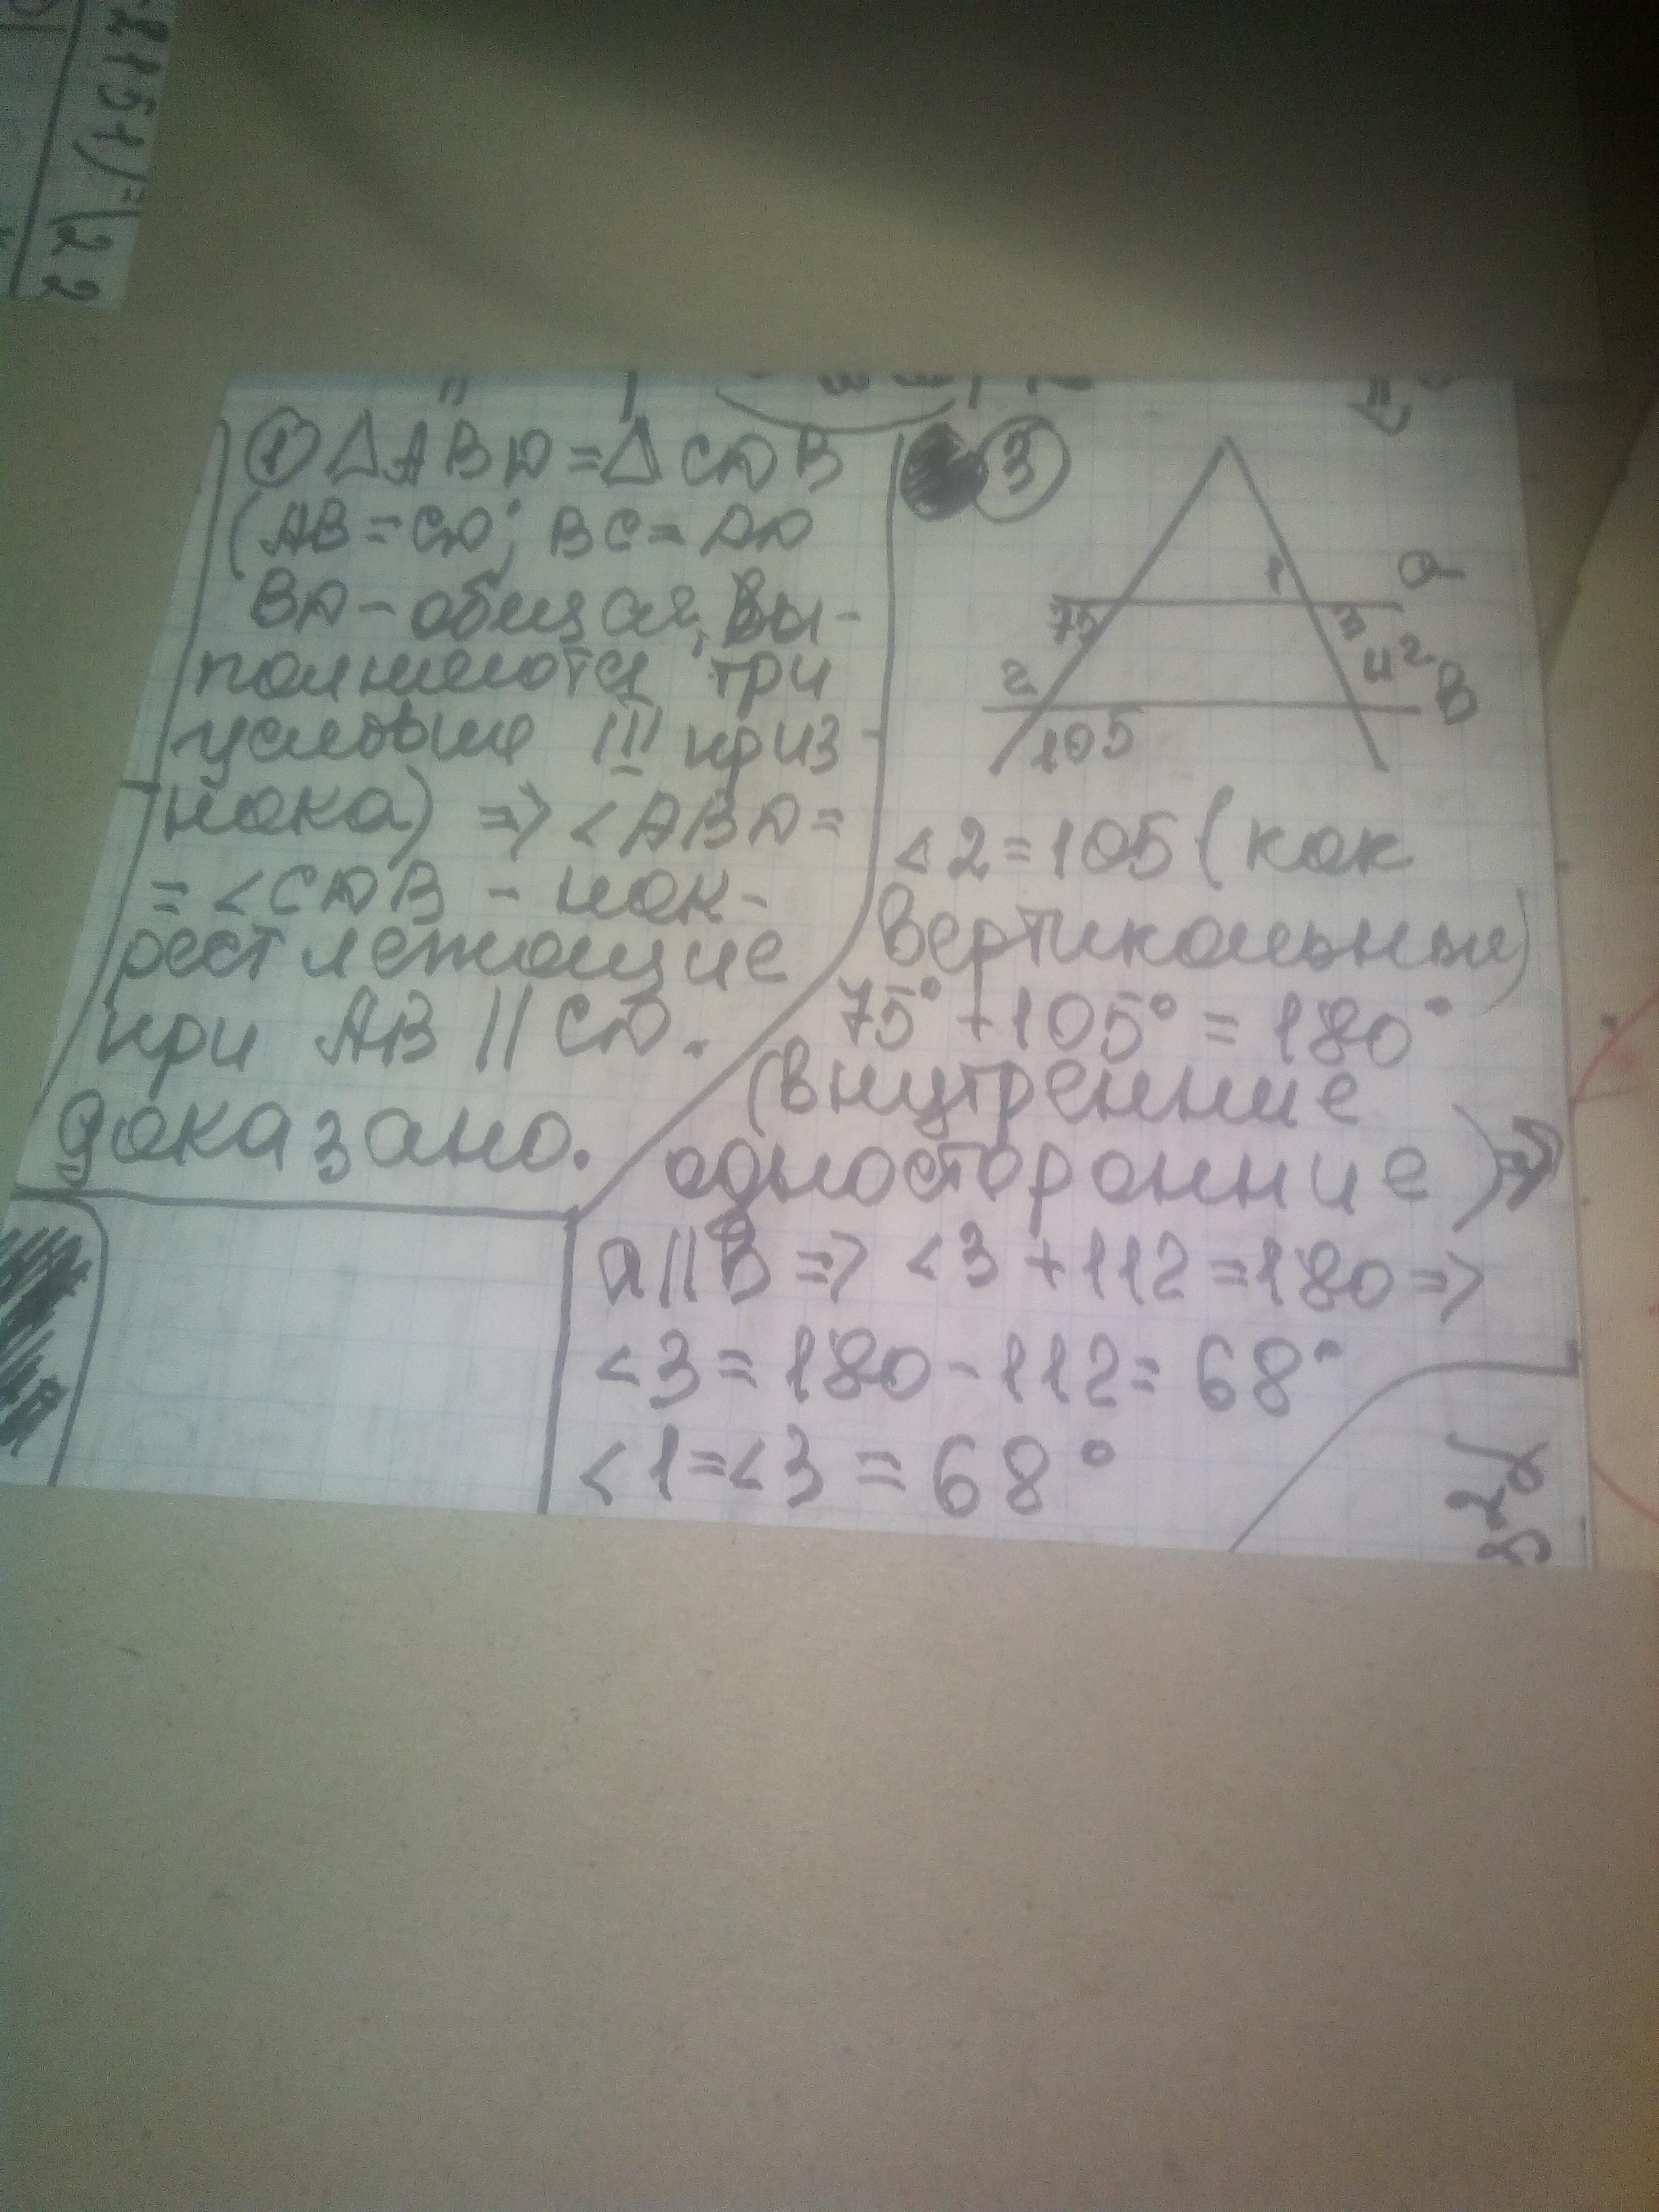 ① △ABD=△CDB
(AB=CD; BC=AD
BD-общая, Вы-
полняются три
условие III приз-
нака) => <ABD=
= <CDB - нак-
рест лежащие
при AB || CD.
доказано.
③
1
a
75
3
112
2
B
105
<2=105 (как
вертикальные)
75°+105°=180°
(внутренние
односторонние) =>
a||B => <3+112=180=>
<3=180-112=68°
<1=<3=68°